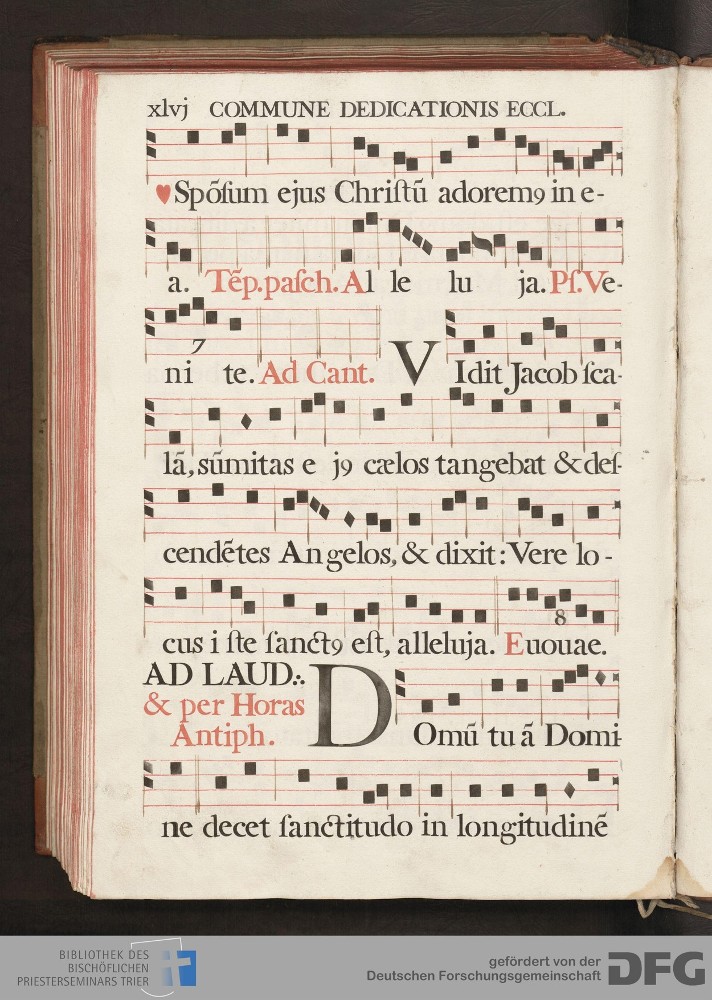 xlvj COMMUNE DEDICATIONIS ECCL.
♥Spõſum ejus Chriſtũ adoremꝯ in e-
a. Tẽp. paſch. Al le lu ja. Pſ. Ve-
7
ni te. Ad Cant. V Idit Jacob ſca-
lã, sũmitas e jꝯ cælos tangebat & deſ-
cendẽtes Angelos, & dixit: Vere lo-
8
cus i ſte ſanctꝯ eſt, alleluja. Euouae.
AD LAUD∴
& per Horas
Antiph.
D Omũ tu ã Domi-
ne decet ſanctitudo in longitudinẽ
BIBLIOTHEK DES
BISCHÖFLICHEN
PRIESTERSEMINARS TRIER
gefördert von der
Deutschen Forschungsgemeinschaft
DFG